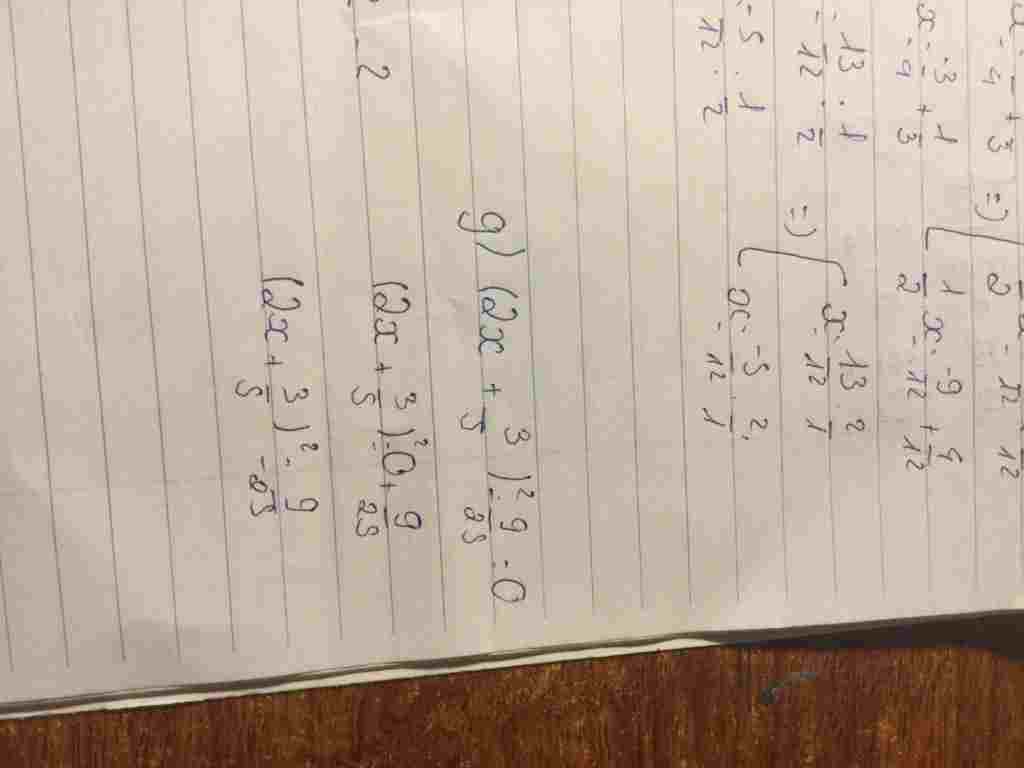 x = - + 3 => 2 x = 12 12
x = -3/4 + 1/3 1/2 x = -9/12 + 4/12
= 13/12 . 1/2 => x = 13/12 . 2/1
= -5/12 . 1/2 x = -5/12 . 2/1
g) (2x + 3/5)² - 9/25 = 0
- 2 (2x + 3/5)² = 0 + 9/25
(2x + 3/5)² = 9/25